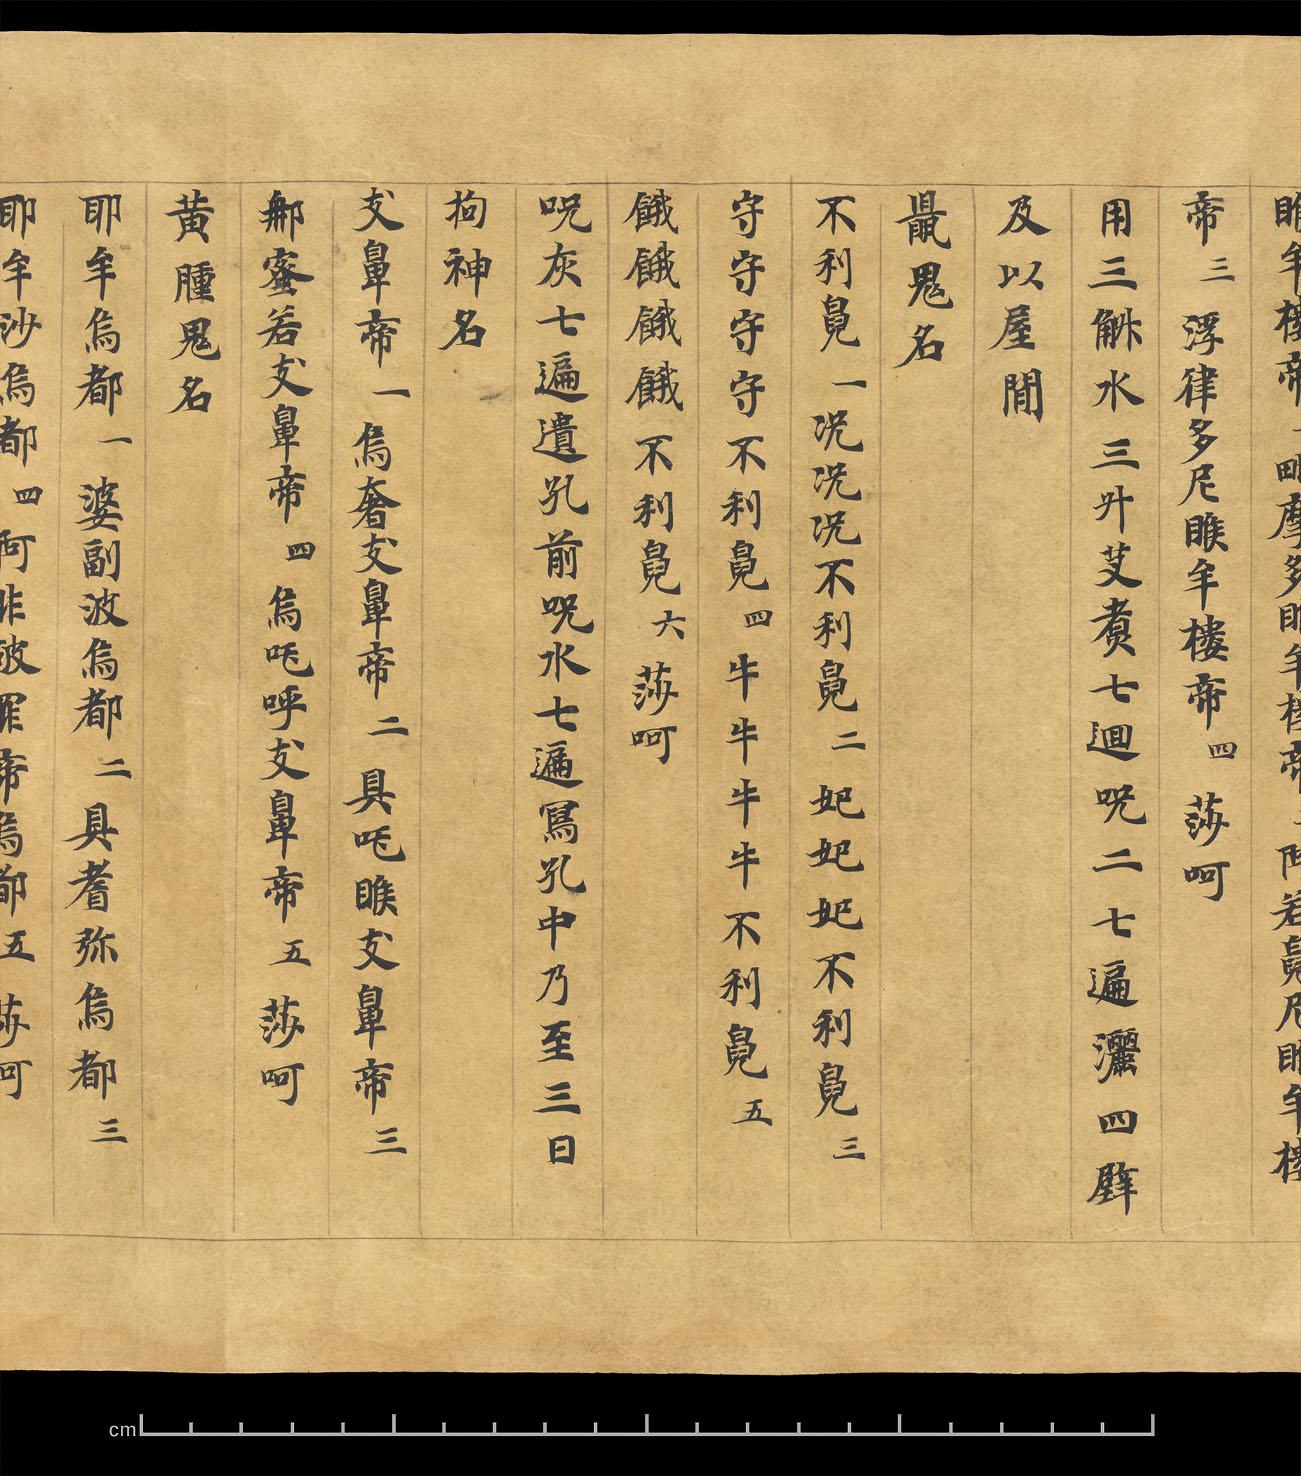 睺牟樓帝一畂摩多睺牟樓帝二阿若㝹尼睺牟樓
帝三浮律多尼睺牟樓帝四莎呵
用三斛水三升艾煑七迴呪二七遍灑四壁
及以屋間
鼠鬼名
不利㝹一况况况不利㝹二妃妃妃不利㝹三
守守守守不利㝹四牛牛牛牛不利㝹五
餓餓餓餓不利㝹六莎呵
呪灰七遍遺孔前呪水七遍寫孔中乃至三日
拘神名
支鼻帝一烏奢支鼻帝二具吒睺支鼻帝三
那蜜若支鼻帝四烏吒呼支鼻帝五莎呵
黄腫鬼名
耶牟烏都一婆副波烏都二具耆弥烏都三
耶牟沙烏都四阿非波羅帝烏都五莎呵
cm